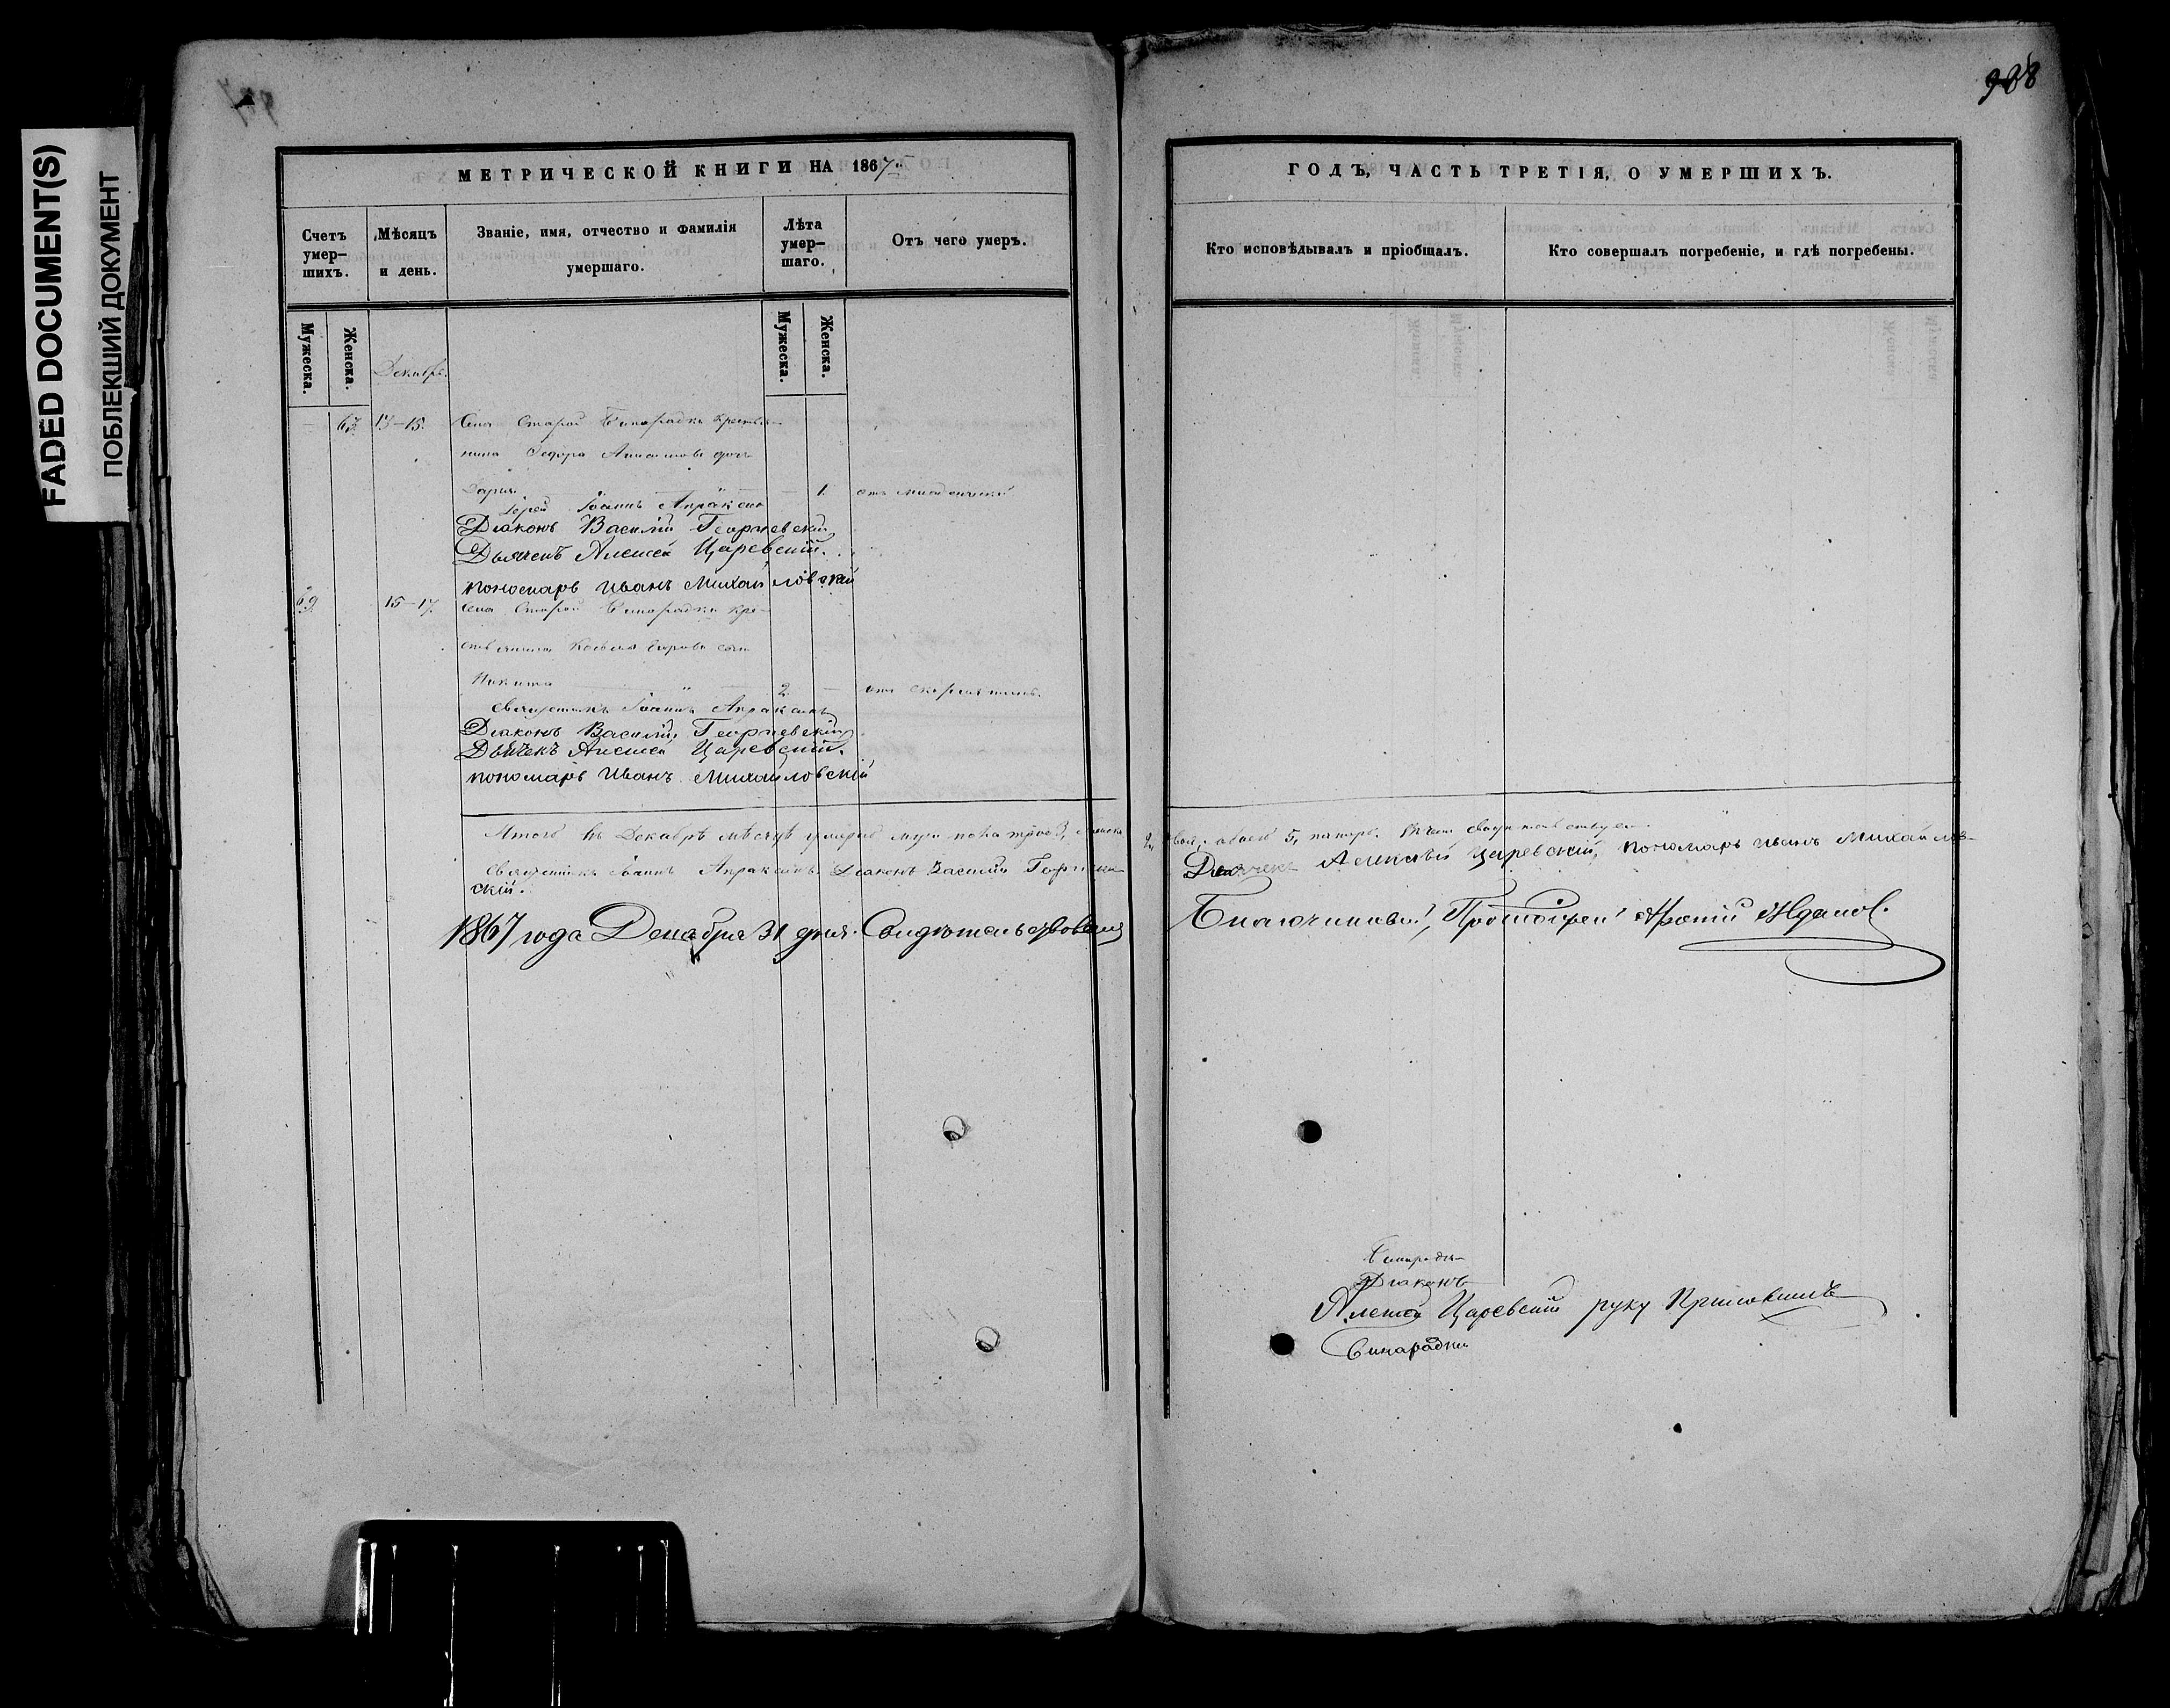 FADED DOCUMENT(S)
ПОБЛЕКШИЙ ДОКУМЕНТ
988
МЕТРИЧЕСКОЙ КНИГИ НА 1867
ГОДЪ, ЧАСТЬ ТРЕТІЯ, О УМЕРШИХЪ.
Счетъ умер-шихъ.
Мѣсяцъ и день.
Званіе, имя, отчество и фамилія умершаго.
Лѣта умер-шаго.
Отъ чего умеръ.
Кто исповѣдывалъ и пріобщалъ.
Кто совершалъ погребеніе, и гдѣ погребены.
Мужеска.
Женска.
Мужеска.
Женска.
Декабрь.
13-15. Села Старой Бинарадки крестья-
нина Федора дочь
Дарья 1.
Іерей Іоаннъ Апраксинъ
Діаконъ Василій Георгіевскій
Дьячекъ Алексѣй Царевскій.
пономарь Иванъ Михайловскій
69 15-17. Села Старой Бинарадки кре-
стьянина сынъ
Никита 2
Священникъ Іоаннъ Апраксинъ
Діаконъ Василій Георгіевскій
Дьячекъ Алексѣй Царевскій.
пономарь Иванъ Михайловскій
Итого въ Декабрѣ мѣсяцѣ умерло муж. пола трое 3, женска
2, двѣ, обоего 5, пятеро.
Священникъ Іоаннъ Апраксинъ. Діаконъ Василій Георгіев-
скій.
Дьячекъ Алексѣй Царевскій, пономарь Иванъ Михайлов-
1867 года Декабря 31 дня. Свидѣтельствовалъ
Благочинный, Протоіерей Ждановъ.
Діаконъ
Алексѣй Царевскій руку приложилъ
Бинарадки